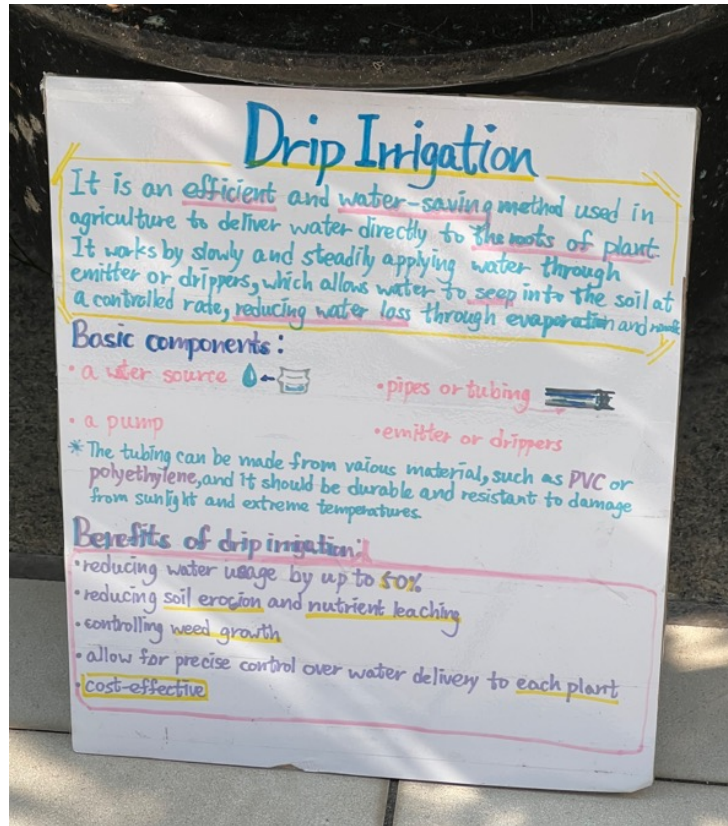 Drip Irrigation
It is an efficient and water-saving method used in
agriculture to deliver water directly to the roots of plant.
It works by slowly and steadily applying water through
emitter or drippers, which allows water to seep into the soil at
a controlled rate, reducing water loss through evaporation and
Basic components:
• a water source
• pipes or tubing
• a pump
• emitter or drippers
* The tubing can be made from vaious material, such as PVC or
polyethylene, and it should be durable and resistant to damage
from sunlight and extreme temperatures.
Benefits of drip irrigation:
• reducing water usage by up to 50%
• reducing soil erocion and nutrient leaching
• controlling weed growth
• allow for precise control over water delivery to each plant
• cost-effective